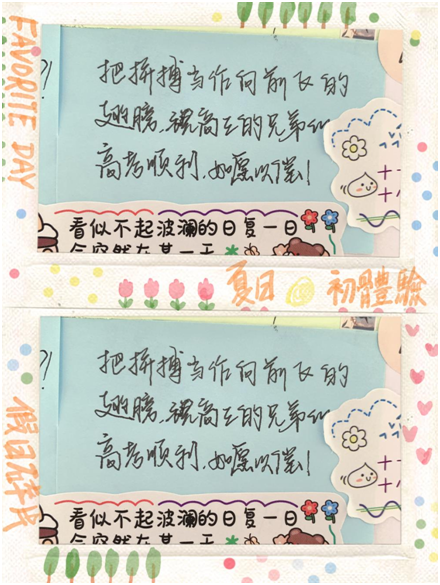 FAVORITE DAY
?!
把拼搏当作向前飞的
翅膀,祝高三的兄弟们
高考顺利,如愿以偿!
看似不起波澜的日复一日
会突然在某一天
夏日 初體驗
假日碎片
?!
把拼搏当作向前飞的
翅膀,祝高三的兄弟们
高考顺利,如愿以偿!
看似不起波澜的日复一日
会突然在某一天